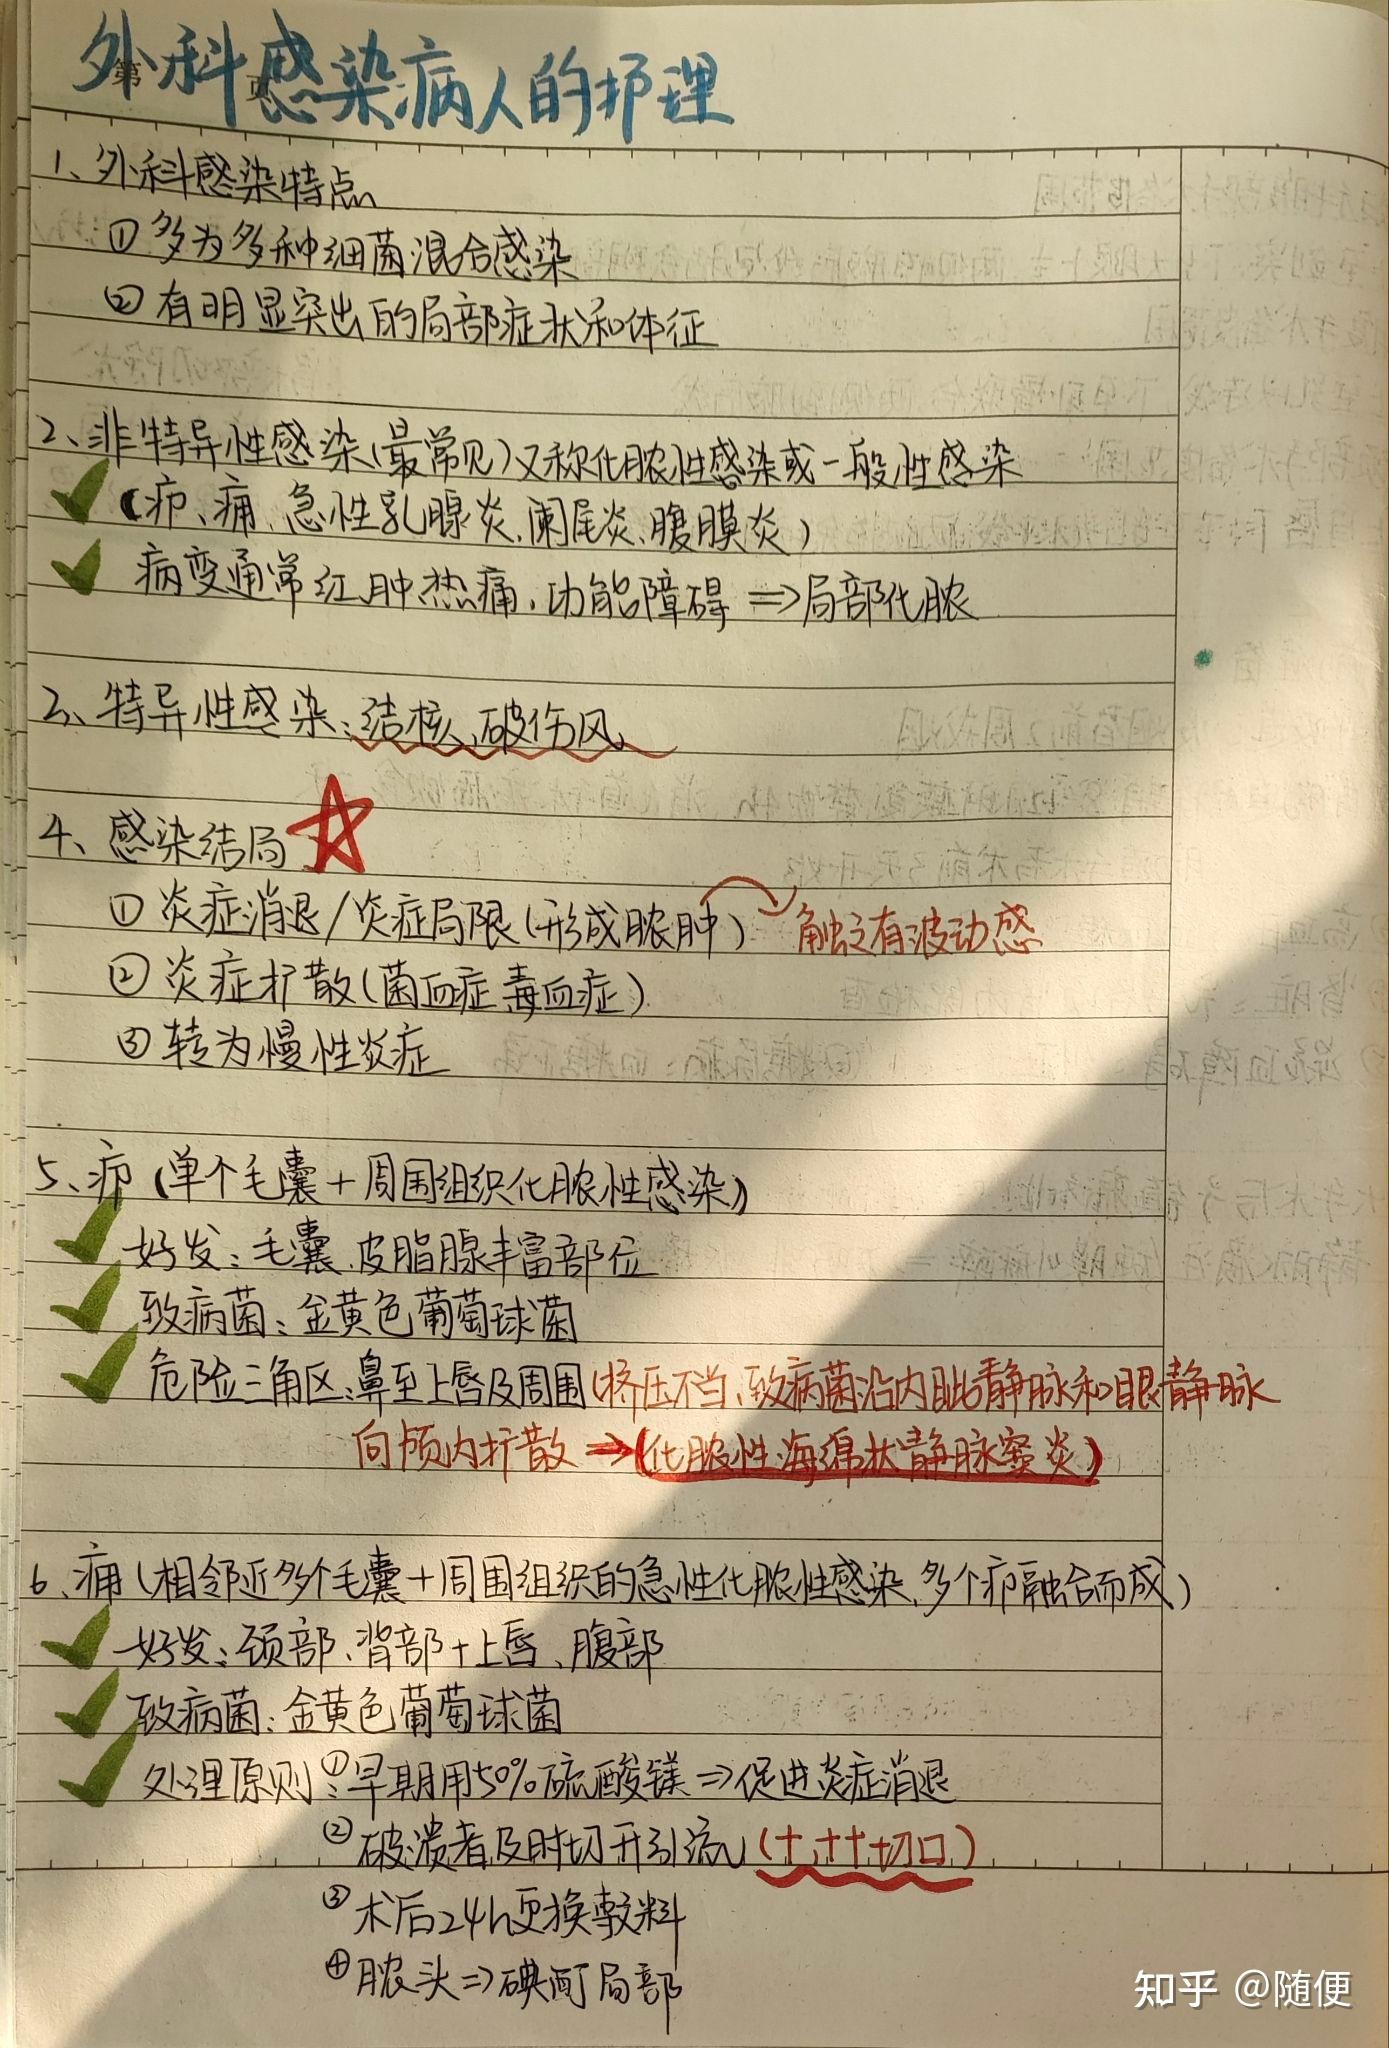 外科感染病人的护理
第 页
1、外科感染特点
①多为多种细菌混合感染
②有明显突出的局部症状和体征
2、非特异性感染(最常见)又称化脓性感染或一般性感染
(疖、痈、急性乳腺炎、阑尾炎、腹膜炎)
病变通常红肿热痛、功能障碍⇒局部化脓
3、特异性感染:结核、破伤风
4、感染结局
①炎症消退/炎症局限(形成脓肿) 触之有波动感
②炎症扩散(菌血症 毒血症)
③转为慢性炎症
5、疖(单个毛囊+周围组织化脓性感染)
好发:毛囊、皮脂腺丰富部位
致病菌:金黄色葡萄球菌
危险三角区:鼻至上唇及周围(挤压不当、致病菌沿内眦静脉和眼静脉
向颅内扩散⇒(化脓性海绵状静脉窦炎)
6、痈(相邻近多个毛囊+周围组织的急性化脓性感染、多个疖融合而成)
好发:颈部、背部+上唇、腹部
致病菌:金黄色葡萄球菌
处理原则:①早期用50%硫酸镁⇒促进炎症消退
②破溃者及时切开引流(+、++切口)
③术后24h更换敷料
④脓头⇒碘酊局部
知乎 @随便